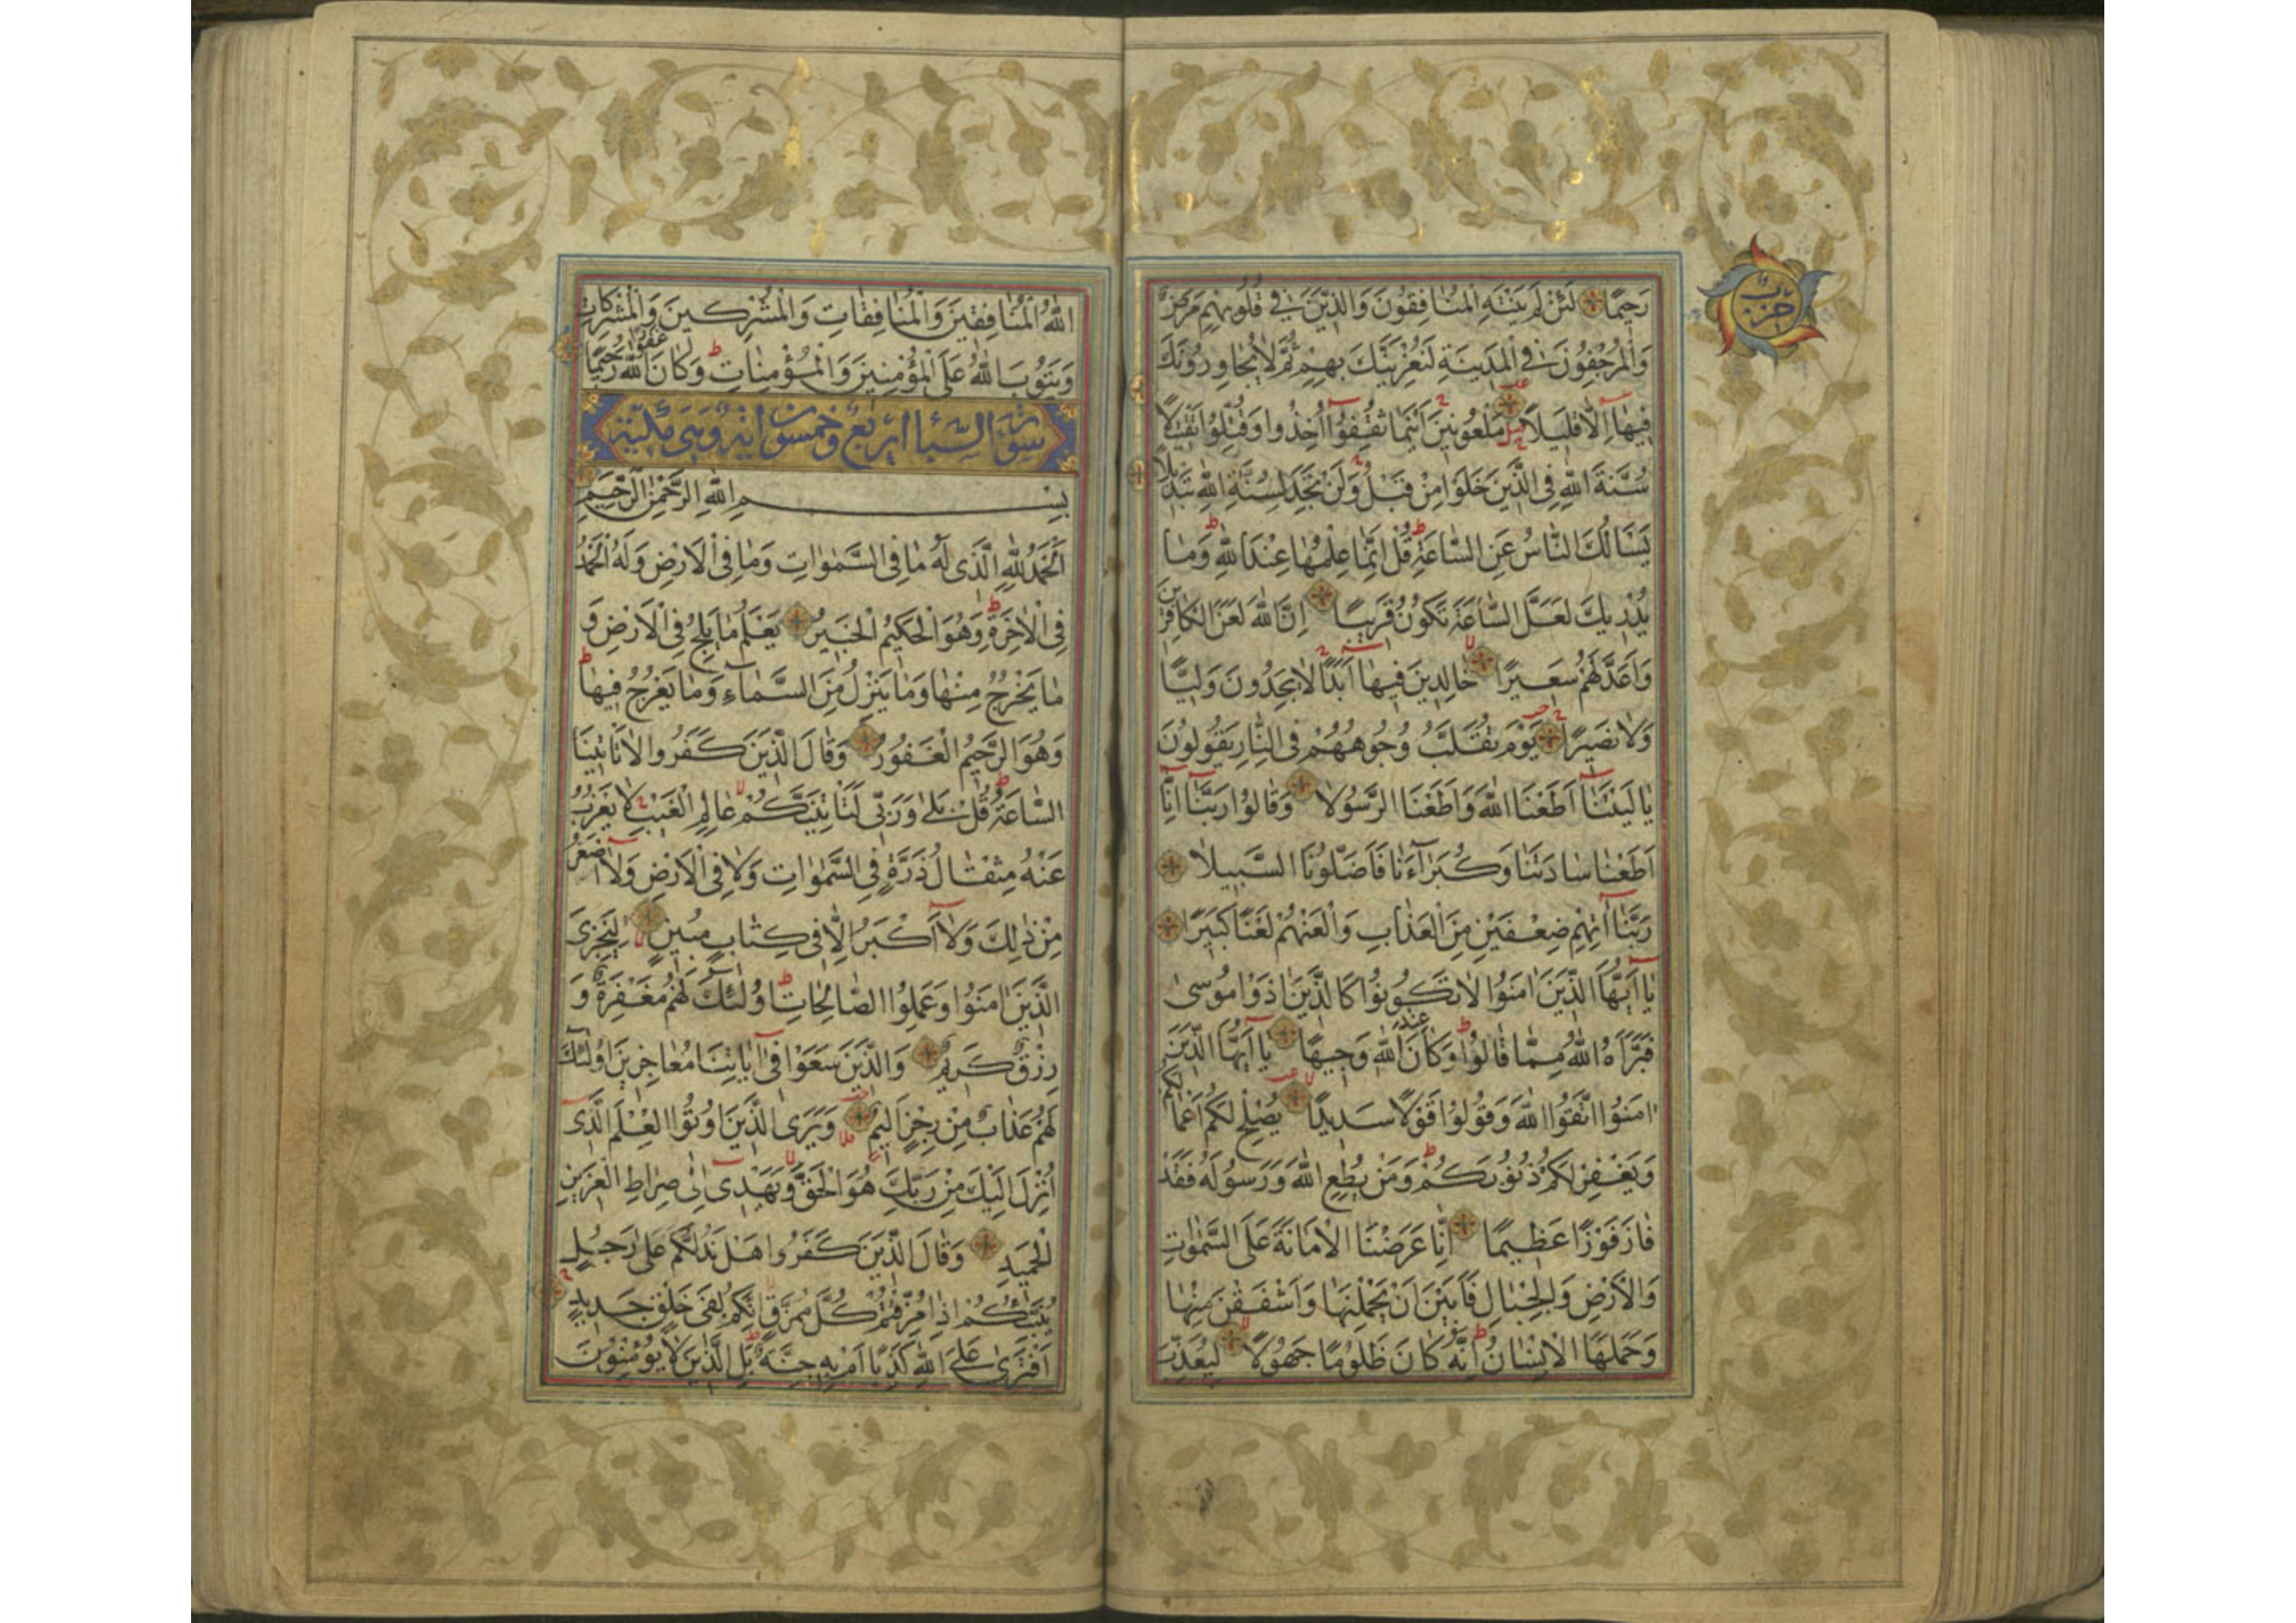 حزب
رَحِيمًا لَئِنْ لَمْ يَنْتَهِ الْمُنَافِقُونَ وَالَّذِينَ فِي قُلُوبِهِمْ مَرَضٌ
وَالْمُرْجِفُونَ فِي الْمَدِينَةِ لَنُغْرِيَنَّكَ بِهِمْ ثُمَّ لَا يُجَاوِرُونَكَ
فِيهَا إِلَّا قَلِيلًا مَلْعُونِينَ أَيْنَمَا ثُقِفُوا أُخِذُوا وَقُتِّلُوا تَقْتِيلًا
سُنَّةَ اللَّهِ فِي الَّذِينَ خَلَوْا مِنْ قَبْلُ وَلَنْ تَجِدَ لِسُنَّةِ اللَّهِ تَبْدِيلًا
يَسْأَلُكَ النَّاسُ عَنِ السَّاعَةِ قُلْ إِنَّمَا عِلْمُهَا عِنْدَ اللَّهِ وَمَا
يُدْرِيكَ لَعَلَّ السَّاعَةَ تَكُونُ قَرِيبًا إِنَّ اللَّهَ لَعَنَ الْكَافِرِينَ
وَأَعَدَّ لَهُمْ سَعِيرًا خَالِدِينَ فِيهَا أَبَدًا لَا يَجِدُونَ وَلِيًّا
وَلَا نَصِيرًا يَوْمَ تُقَلَّبُ وُجُوهُهُمْ فِي النَّارِ يَقُولُونَ
يَا لَيْتَنَا أَطَعْنَا اللَّهَ وَأَطَعْنَا الرَّسُولَا وَقَالُوا رَبَّنَا إِنَّا
أَطَعْنَا سَادَتَنَا وَكُبَرَاءَنَا فَأَضَلُّونَا السَّبِيلَا
رَبَّنَا آتِهِمْ ضِعْفَيْنِ مِنَ الْعَذَابِ وَالْعَنْهُمْ لَعْنًا كَبِيرًا
يَا أَيُّهَا الَّذِينَ آمَنُوا لَا تَكُونُوا كَالَّذِينَ آذَوْا مُوسَى
فَبَرَّأَهُ اللَّهُ مِمَّا قَالُوا وَكَانَ عِنْدَ اللَّهِ وَجِيهًا يَا أَيُّهَا الَّذِينَ
آمَنُوا اتَّقُوا اللَّهَ وَقُولُوا قَوْلًا سَدِيدًا يُصْلِحْ لَكُمْ أَعْمَالَكُمْ
وَيَغْفِرْ لَكُمْ ذُنُوبَكُمْ وَمَنْ يُطِعِ اللَّهَ وَرَسُولَهُ فَقَدْ
فَازَ فَوْزًا عَظِيمًا إِنَّا عَرَضْنَا الْأَمَانَةَ عَلَى السَّمَوَاتِ
وَالْأَرْضِ وَالْجِبَالِ فَأَبَيْنَ أَنْ يَحْمِلْنَهَا وَأَشْفَقْنَ مِنْهَا
وَحَمَلَهَا الْإِنْسَانُ إِنَّهُ كَانَ ظَلُومًا جَهُولًا لِيُعَذِّبَ
اللَّهُ الْمُنَافِقِينَ وَالْمُنَافِقَاتِ وَالْمُشْرِكِينَ وَالْمُشْرِكَاتِ
وَيَتُوبَ اللَّهُ عَلَى الْمُؤْمِنِينَ وَالْمُؤْمِنَاتِ وَكَانَ اللَّهُ غَفُورًا رَحِيمًا
سورة السبا اربع وخمسون اية وهى مكية
بِسْمِ اللَّهِ الرَّحْمَنِ الرَّحِيمِ
اَلْحَمْدُ لِلَّهِ الَّذِي لَهُ مَا فِي السَّمَوَاتِ وَمَا فِي الْأَرْضِ وَلَهُ الْحَمْدُ
فِي الْآخِرَةِ وَهُوَ الْحَكِيمُ الْخَبِيرُ يَعْلَمُ مَا يَلِجُ فِي الْأَرْضِ وَ
مَا يَخْرُجُ مِنْهَا وَمَا يَنْزِلُ مِنَ السَّمَاءِ وَمَا يَعْرُجُ فِيهَا
وَهُوَ الرَّحِيمُ الْغَفُورُ وَقَالَ الَّذِينَ كَفَرُوا لَا تَأْتِينَا
السَّاعَةُ قُلْ بَلَى وَرَبِّي لَتَأْتِيَنَّكُمْ عَالِمِ الْغَيْبِ لَا يَعْزُبُ
عَنْهُ مِثْقَالُ ذَرَّةٍ فِي السَّمَوَاتِ وَلَا فِي الْأَرْضِ وَلَا أَصْغَرُ
مِنْ ذَلِكَ وَلَا أَكْبَرُ إِلَّا فِي كِتَابٍ مُبِينٍ لِيَجْزِيَ
الَّذِينَ آمَنُوا وَعَمِلُوا الصَّالِحَاتِ أُولَئِكَ لَهُمْ مَغْفِرَةٌ وَ
رِزْقٌ كَرِيمٌ وَالَّذِينَ سَعَوْا فِي آيَاتِنَا مُعَاجِزِينَ أُولَئِكَ
لَهُمْ عَذَابٌ مِنْ رِجْزٍ أَلِيمٌ وَيَرَى الَّذِينَ أُوتُوا الْعِلْمَ الَّذِي
أُنْزِلَ إِلَيْكَ مِنْ رَبِّكَ هُوَ الْحَقَّ وَيَهْدِي إِلَى صِرَاطِ الْعَزِيزِ
الْحَمِيدِ وَقَالَ الَّذِينَ كَفَرُوا هَلْ نَدُلُّكُمْ عَلَى رَجُلٍ
يُنَبِّئُكُمْ إِذَا مُزِّقْتُمْ كُلَّ مُمَزَّقٍ إِنَّكُمْ لَفِي خَلْقٍ جَدِيدٍ
أَفْتَرَى عَلَى اللَّهِ كَذِبًا أَمْ بِهِ جِنَّةٌ بَلِ الَّذِينَ لَا يُؤْمِنُونَ